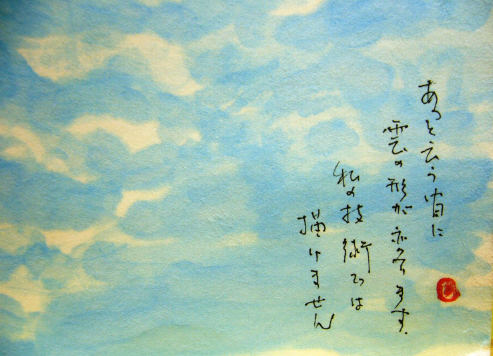 あっと云う間に
雲の形が変わります.
私の技術では
描けません